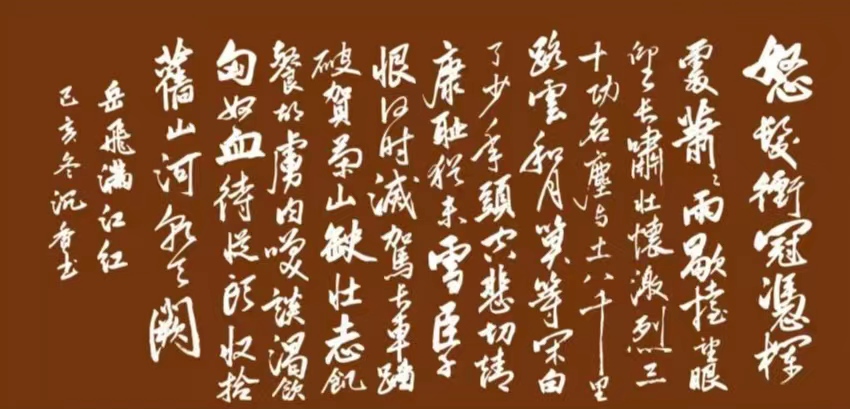 怒髮衝冠憑欄
處蕭〻雨歇抬望眼
仰天长嘯壯懷激烈三
十功名塵与土八千里
路雲和月莫等閑白
了少年頭空悲切靖
康耻猶未雪臣子
恨何时滅駕长車踏
破賀蘭山缺壯志飢
餐胡虜肉笑談渴飲
匈奴血待從頭收拾
舊山河朝天闕
岳飛滿江紅
己亥冬沉香书